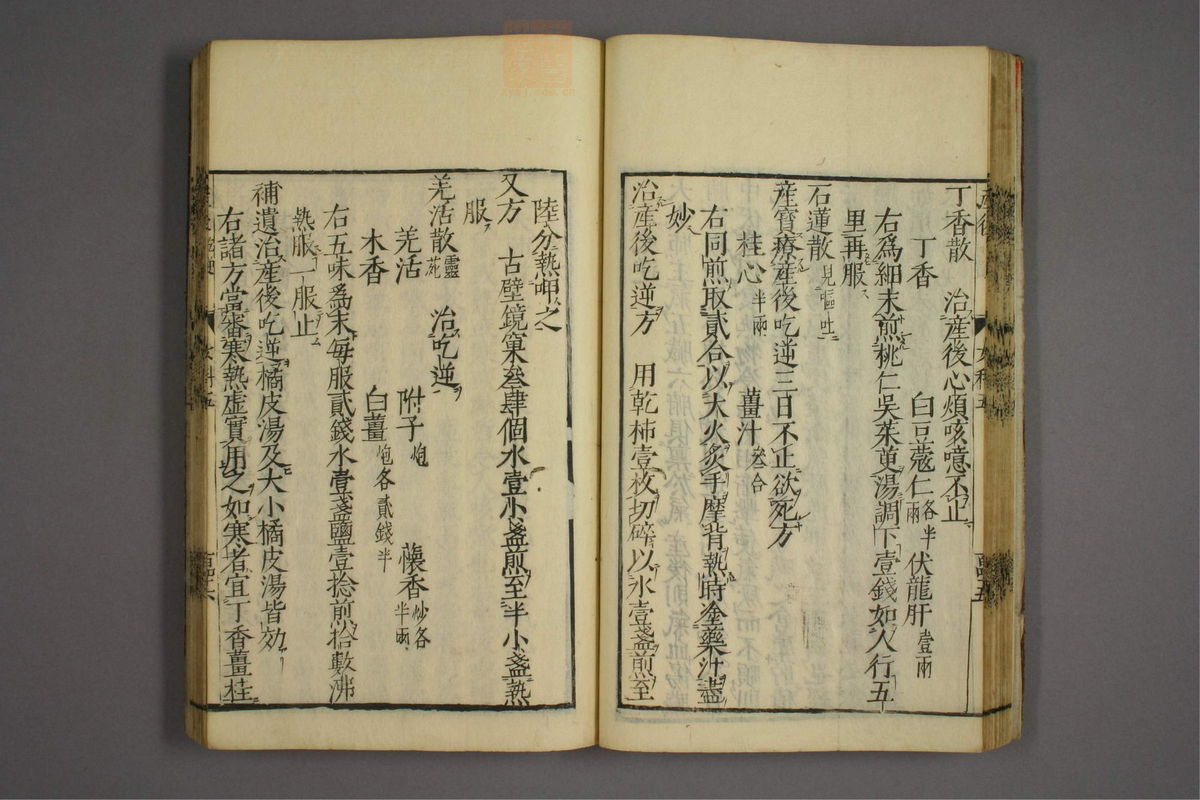 丁香散　治產後心煩咳噫不止
丁香　白豆蔻仁各半兩　伏龍肝壹兩
右爲細末煎桃仁吳茱萸湯調下壹錢如人行五
里再服
石蓮散見嘔吐
產寶療產後吃逆三日不止欲死方
桂心半兩　薑汁叄合
右同煎取貳合以大火炙手摩背熱時塗藥汁盡
妙
治產後吃逆方　用乾柿壹枚切碎以水壹盞煎至
陸分熱呷之
又方　古壁鏡窠叁肆個水壹小盞煎至半小盞熱
服
羌活散靈苑　治吃逆
羌活　附子炮　蘹香炒各半兩
木香　白薑炮各貳錢半
右五味爲末每服貳錢水壹盞鹽壹捻煎拾數沸
熱服一服止
補遺治產後吃逆橘皮湯及大小橘皮湯皆効
右諸方當審寒熱虛實用之如寒者宜丁香薑桂